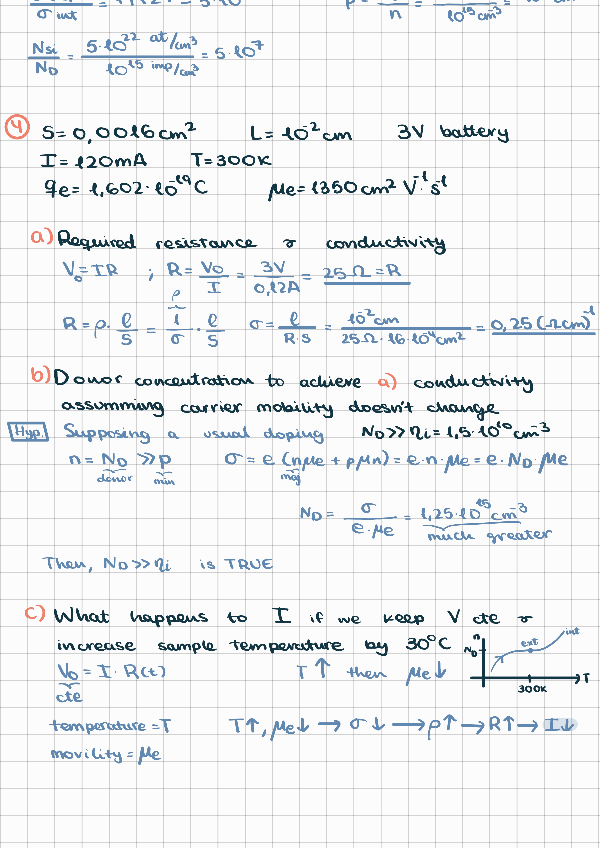 σ int
n
10¹⁵ cm⁻³
N_Si / N_D = 5·10²² at/cm³ / 10¹⁵ imp/cm³ = 5·10⁷
4 S = 0,0016 cm² L = 10⁻² cm 3V battery
I = 120mA T = 300K
qe = 1,602·10⁻¹⁹ C μe = 1350 cm² V⁻¹ s⁻¹
a) Required resistance & conductivity
V₀ = IR ; R = V₀/I = 3V/0,12A = 25 Ω = R
ρ
R = ρ · l/S = 1/σ · l/S σ = l/R·S = 10⁻² cm / 25Ω · 16·10⁻⁴ cm² = 0,25 (Ωcm)⁻¹
b) Donor concentration to achieve a) conductivity
assumming carrier mobility doesn't change
Hyp. Supposing a usual doping N_D >> ni = 1,5·10¹⁰ cm⁻³
n = N_D >> p σ = e (nμe + pμn) = e·n·μe = e·N_D·μe
donor min maj
N_D = σ / e·μe = 1,25·10¹⁵ cm⁻³
much greater
Then, N_D >> ni is TRUE
c) What happens to I if we keep V cte &
increase sample temperature by 30°C
n N_D ext int 300K T
V₀ = I·R(t) T ↑ then μe ↓
cte
temperature = T T↑, μe↓ → σ↓ → ρ↑ → R↑ → I↓
movility = μe